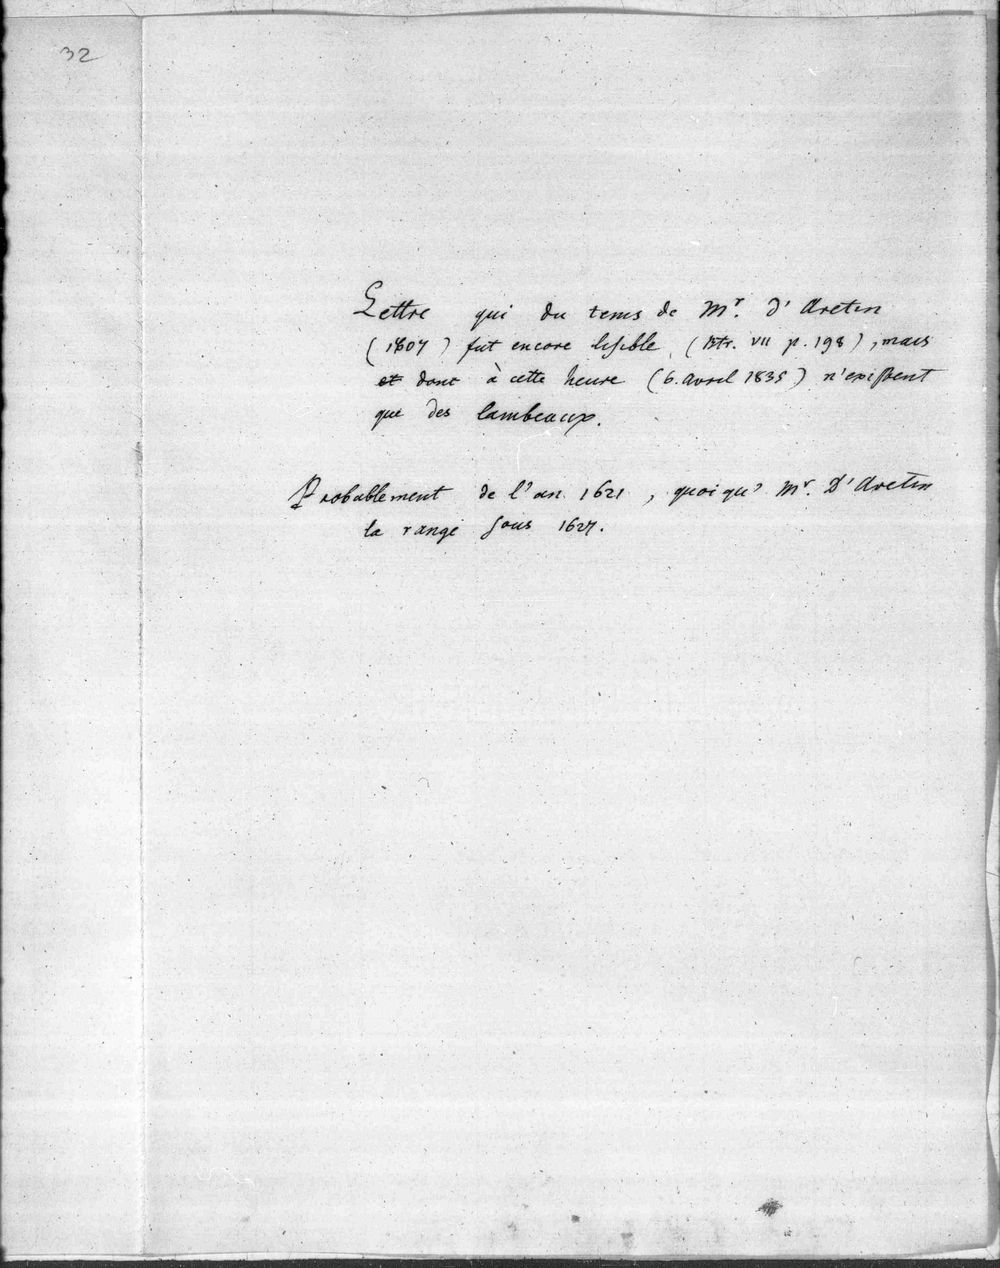 32
Lettre qui du tems de Mr. d'Aretin
(1807) fut encore lisible (Btr. VII p. 198), mais
et dont à cette heure (6. Avril 1835) n'existent
que des lambeaux.
Probablement de l'an 1621, quoiqu' Mr. D'Aretin
la range sous 1627.